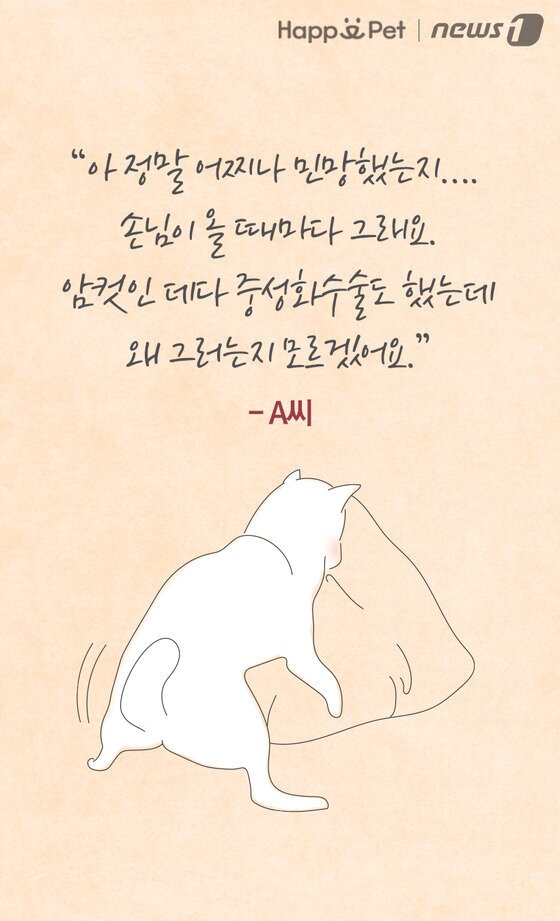 HappyPet | news1
“아 정말 어찌나 민망했는지....
손님이 올 때마다 그래요.
암컷인 데다 중성화수술도 했는데
왜 그러는지 모르겠어요.”
- A씨